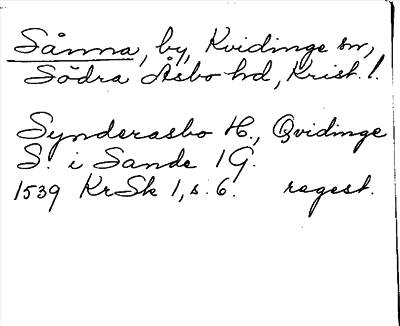 Sånna, by, Kvidinge sn,
Södra Åsbo hd, Krist. l.
Synderasbo H., Qvidinge
S. i Sande 1 G.
1539 KrSk 1, s. 6. regest.